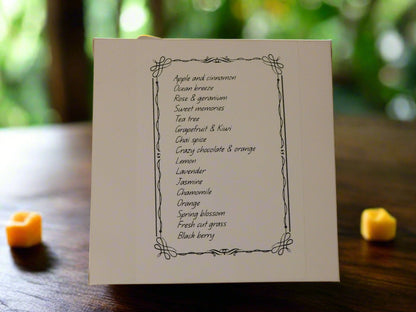 Apple and cinnamon
Ocean breeze
Rose & geranium
Sweet memories
Tea tree
Grapefruit & Kiwi
Chai spice
Crazy chocolate & orange
Lemon
Lavender
Jasmine
Chamomile
Orange
Spring blossom
Fresh cut grass
Black berry